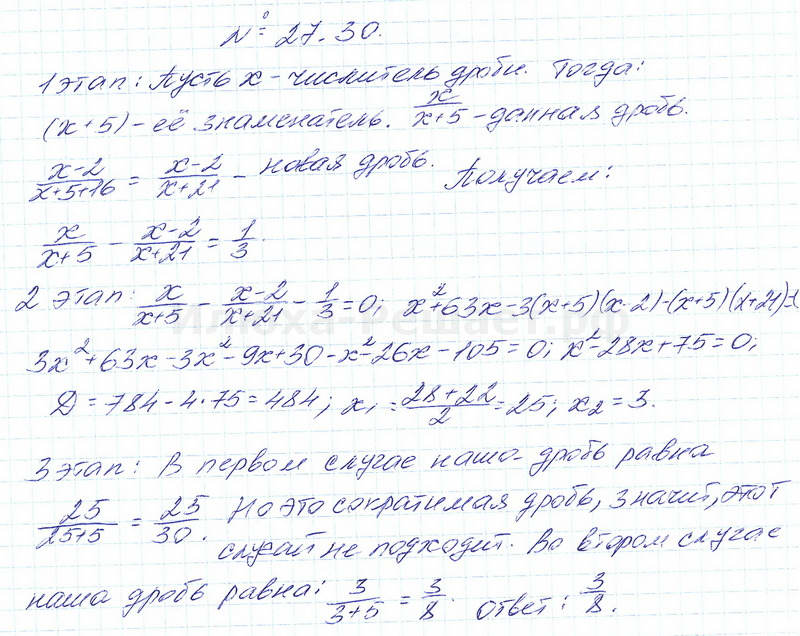 № 27.30.
1 этап: Пусть x - числитель дроби. Тогда:
(x+5) - её знаменатель. x/(x+5) - данная дробь.
(x-2)/(x+5+16) = (x-2)/(x+21) - новая дробь. Получаем:
x/(x+5) - (x-2)/(x+21) = 1/3.
2 этап: x/(x+5) - (x-2)/(x+21) - 1/3 = 0; x²+63x-3(x+5)(x-2)-(x+5)(x+21)=0
3x²+63x-3x²-9x+30-x²-26x-105=0; x²-28x+75=0;
Д = 784-4·75=484; x₁ = (28+22)/2 = 25; x₂ = 3.
3 этап: В первом случае наша дробь равна
25/(25+5) = 25/30. Но это сократимая дробь, значит, этот
случай не подходит. Во втором случае
наша дробь равна: 3/(3+5) = 3/8. Ответ: 3/8.
Илюха-Решает.рф